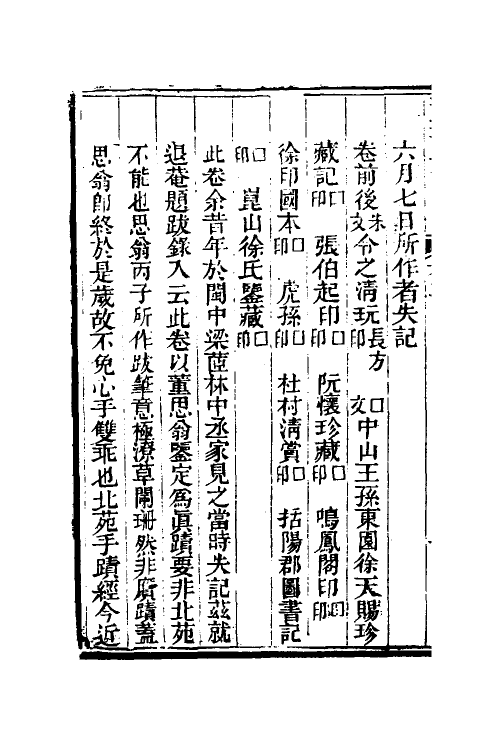 六月七日所作者失記
卷前後朱文令之清玩長方印 □文中山王孫東園徐天賜珍
藏記□印 張伯起印□印 阮懷珍藏□印 鳴鳳閣印□印
徐印國本□印 虎孫□印 杜村清賞□印 括陽郡圖書記
□印 崑山徐氏鑒藏□印
此卷余昔年於閩中梁茝林中丞家見之當時失記茲就
退菴題跋錄入云此卷以董思翁鑒定爲眞蹟要非北苑
不能也思翁丙子所作跋筆意極潦草闌珊然非贋蹟蓋
思翁卽終於是歲故不免心手雙乖也北苑手蹟經今近